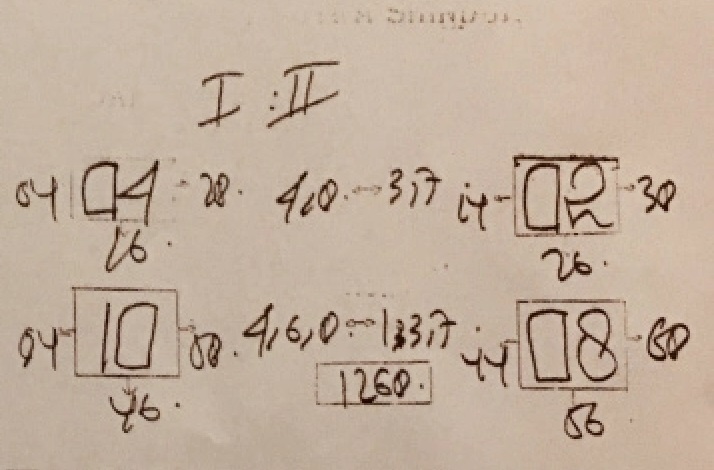 I : II
04 04 - 20. 4,0. ↔ 3,7 14 - 02 - 30
26. 26.
04 - 10 - 00. 4,6,0 ↔ 1,3,3,7 44 - 08 - 60
1260.
46. 06